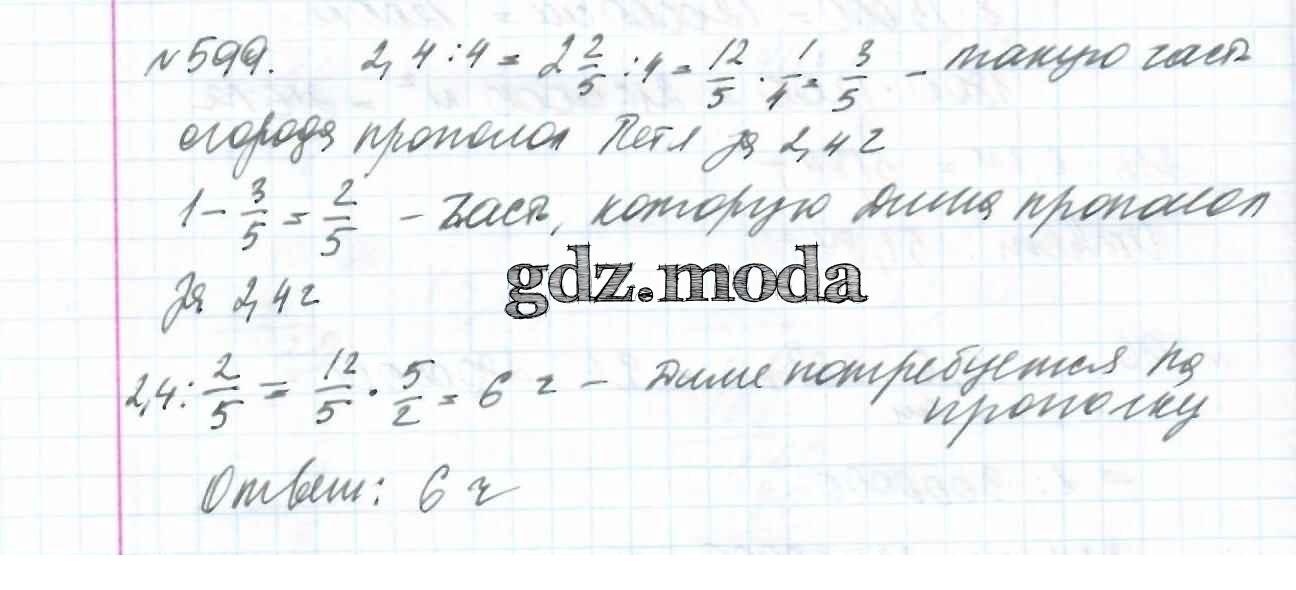 №599. 2,4 : 4 = 2 2/5 : 4 = 12/5 · 1/4 = 3/5 – такую часть
огорода прополол Петя за 2,4 ч
1 – 3/5 = 2/5 – часть, которую Дима прополол
за 2,4 ч
gdz.moda
2,4 : 2/5 = 12/5 · 5/2 = 6 ч – Диме потребуется на
прополку
Ответ: 6 ч